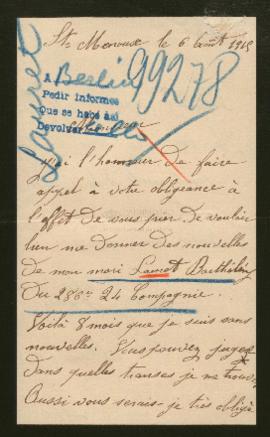 Ste Menouse le 6 Août 1915
A Berlin
99278
Pedir informes
Que se hace así
Devolver
Monsieur
Lamet
J'ai l'honneur de faire
appel à votre obligeance à
l'effet de vous prier de vouloir
bien me donner des nouvelles
de mon mari Lamet Barthélémy
Du 286eme 24 Compagnie.
Voilà 8 mois que je suis sans
nouvelles. Vous pouvez juger
dans quelles transes je me trouve
Aussi vous serais-je très obligée